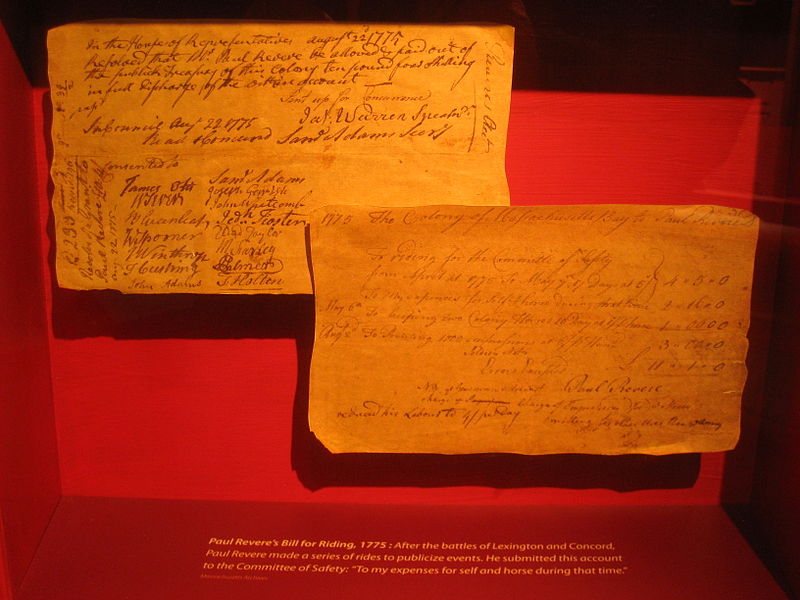 In the House of Representatives August 22d 1775
Resolved that Mr. Paul Revere be allowed & paid out of
the publick Treasury of this Colony ten pound four Shilling
in full discharge of the within account
Sent up for Concurrence
Jas. Warren Speakr.
In Council Aug 22 1775
Read & Concurd Saml. Adams Secry
Consented to
James Otis
W Sever
B Greenleaf
W Spooner
J Winthrop
T Cushing
John Adams
Saml. Adams
Joseph Gerrish
John Whetcomb
Jedh. Foster
Eldad Taylor
M Farley
J Palmer
S Holten
Paul Revere
Aug 22 1775
1775 The Colony of Massachusetts Bay to Paul Revere Dr
To riding for the Committee of Safety
from April 21 1775 To May 7th, 17 Day at 5/ 4 = 5 = 0
To my expences for self & horse during that time 2 = 16 = 0
May 6th To keeping two Colony Horses 10 Day at 1/ horse 1 = 00 = 0
Augt 2d To Printing 1000 impressions at 6/ Hund
3 = 00 = 0
Soldiers Notes
Errors Excepted £ 11 = 1 = 0
Paul Revere
reduced his Labour to 4/ per Day
Paul Revere's Bill for Riding, 1775 : After the battles of Lexington and Concord,
Paul Revere made a series of rides to publicize events. He submitted this account
to the Committee of Safety: "To my expenses for self and horse during that time."
Massachusetts Archives